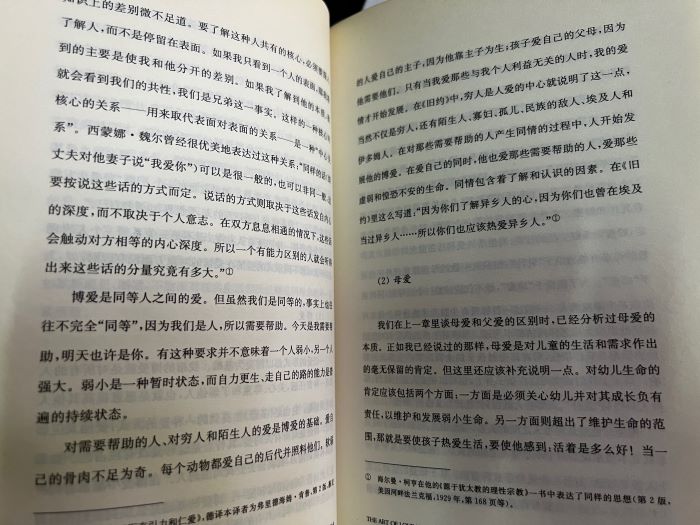 知识上的差别微不足道。要了解这种人共有的核心,必须
了解人,而不是停留在表面。如果我只看到一个人的表面,
到的主要是使我和他分开的差别。如果我了解到他的本质,
就会看到我们的共性,我们是兄弟这一事实。这样的一种
核心的关系——用来取代表面对表面的关系——是一种“中心
系”。西蒙娜·魏尔曾经很优美地表达过这种关系:“同样的话(
丈夫对他妻子说“我爱你”)可以是很一般的,也可以非同一般,
要按说这些话的方式而定。说话的方式则取决于这些话发自人
的深度,而不取决于个人意志。在双方息息相通的情况下,这些
会触动对方相等的内心深度。所以一个有能力区别的人就会听
出来这些话的分量究竟有多大。”①
博爱是同等人之间的爱。但虽然我们是同等的,事实上
往不完全“同等”,因为我们是人,所以需要帮助。今天是我需要
助,明天也许是你。有这种要求并不意味着一个人弱小,另一个人
强大。弱小是一种暂时状态,而自力更生、走自己的路的能力是
遍的持续状态。
对需要帮助的人、对穷人和陌生人的爱是博爱的基础。爱自
己的骨肉不足为奇。每个动物都爱自己的后代并照料他们。
引力和仁爱》,德译本译者为弗里德海姆·肯普,第2版,
的人爱自己的主子,因为他靠主子为生;孩子爱自己的父母,因为
他需要他们。只有当我爱那些与我个人利益无关的人时,我的爱
情才开始发展。在《旧约》中,穷人是人爱的中心就说明了这一点,
当然不仅是穷人,还有陌生人、寡妇、孤儿、民族的敌人、埃及人和
伊多姆人。在对那些需要帮助的人产生同情的过程中,人开始发
展他的博爱。在爱自己的同时,他也爱那些需要帮助的人,爱那些
虚弱和惶恐不安的生命。同情包含着了解和认同的因素。在《旧
约》里这么写道:“因为你们了解异乡人的心,因为你们也曾在埃及
当过异乡人……所以你们也应该热爱异乡人。”①
(2) 母爱
我们在上一章里谈母爱和父爱的区别时,已经分析过母爱的
本质。正如我已经说过的那样,母爱是对儿童的生活和需求作出
的毫无保留的肯定。但这里还应该补充说明一点。对幼儿生命的
肯定应该包括两个方面:一方面是必须关心幼儿并对其成长负有
责任,以维护和发展弱小生命。另一方面则超出了维护生命的范
围,那就是要使孩子热爱生活,要使他感到:活着是多么好!当一
① 海尔曼·柯亨在他的《源于犹太教的理性宗教》一书中表达了同样的思想(第2版,
美因河畔法兰克福,1929年,第168页等)。
THE ART OF